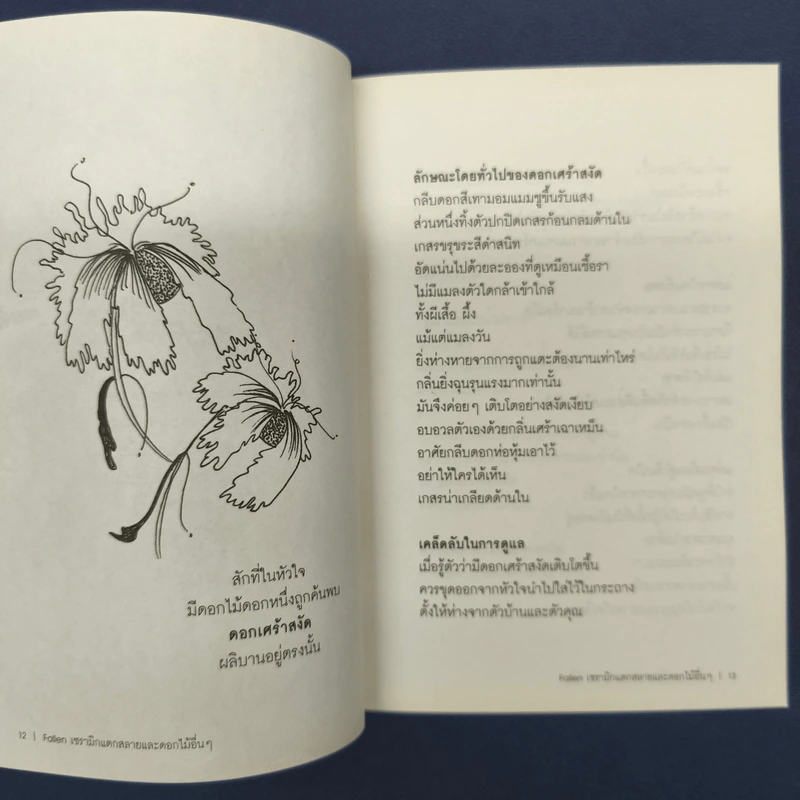 สักที่ในหัวใจ
มีดอกไม้ดอกหนึ่งถูกค้นพบ
ดอกเศร้าสงัด
ผลิบานอยู่ตรงนั้น
12 | Fallen เซรามิกแตกสลายและดอกไม้อื่นๆ
ลักษณะโดยทั่วไปของดอกเศร้าสงัด
กลีบดอกสีเทามอมแมมชูขึ้นรับแสง
ส่วนหนึ่งทิ้งตัวปกปิดเกสรก้อนกลมด้านใน
เกสรขรุขระสีดำสนิท
อัดแน่นไปด้วยละอองที่ดูเหมือนเชื้อรา
ไม่มีแมลงตัวใดกล้าเข้าใกล้
ทั้งผีเสื้อ ผึ้ง
แม้แต่แมลงวัน
ยิ่งห่างหายจากการถูกแตะต้องนานเท่าไหร่
กลิ่นยิ่งฉุนรุนแรงมากเท่านั้น
มันจึงค่อยๆ เติบโตอย่างสงัดเงียบ
อบอวลตัวเองด้วยกลิ่นเศร้าเฉาเหม็น
อาศัยกลีบดอกห่อหุ้มเอาไว้
อย่าให้ใครได้เห็น
เกสรน่าเกลียดด้านใน
เคล็ดลับในการดูแล
เมื่อรู้ตัวว่ามีดอกเศร้าสงัดเติบโตขึ้น
ควรขุดออกจากหัวใจนำไปใส่ไว้ในกระถาง
ตั้งให้ห่างจากตัวบ้านและตัวคุณ
Fallen เซรามิกแตกสลายและดอกไม้อื่นๆ | 13